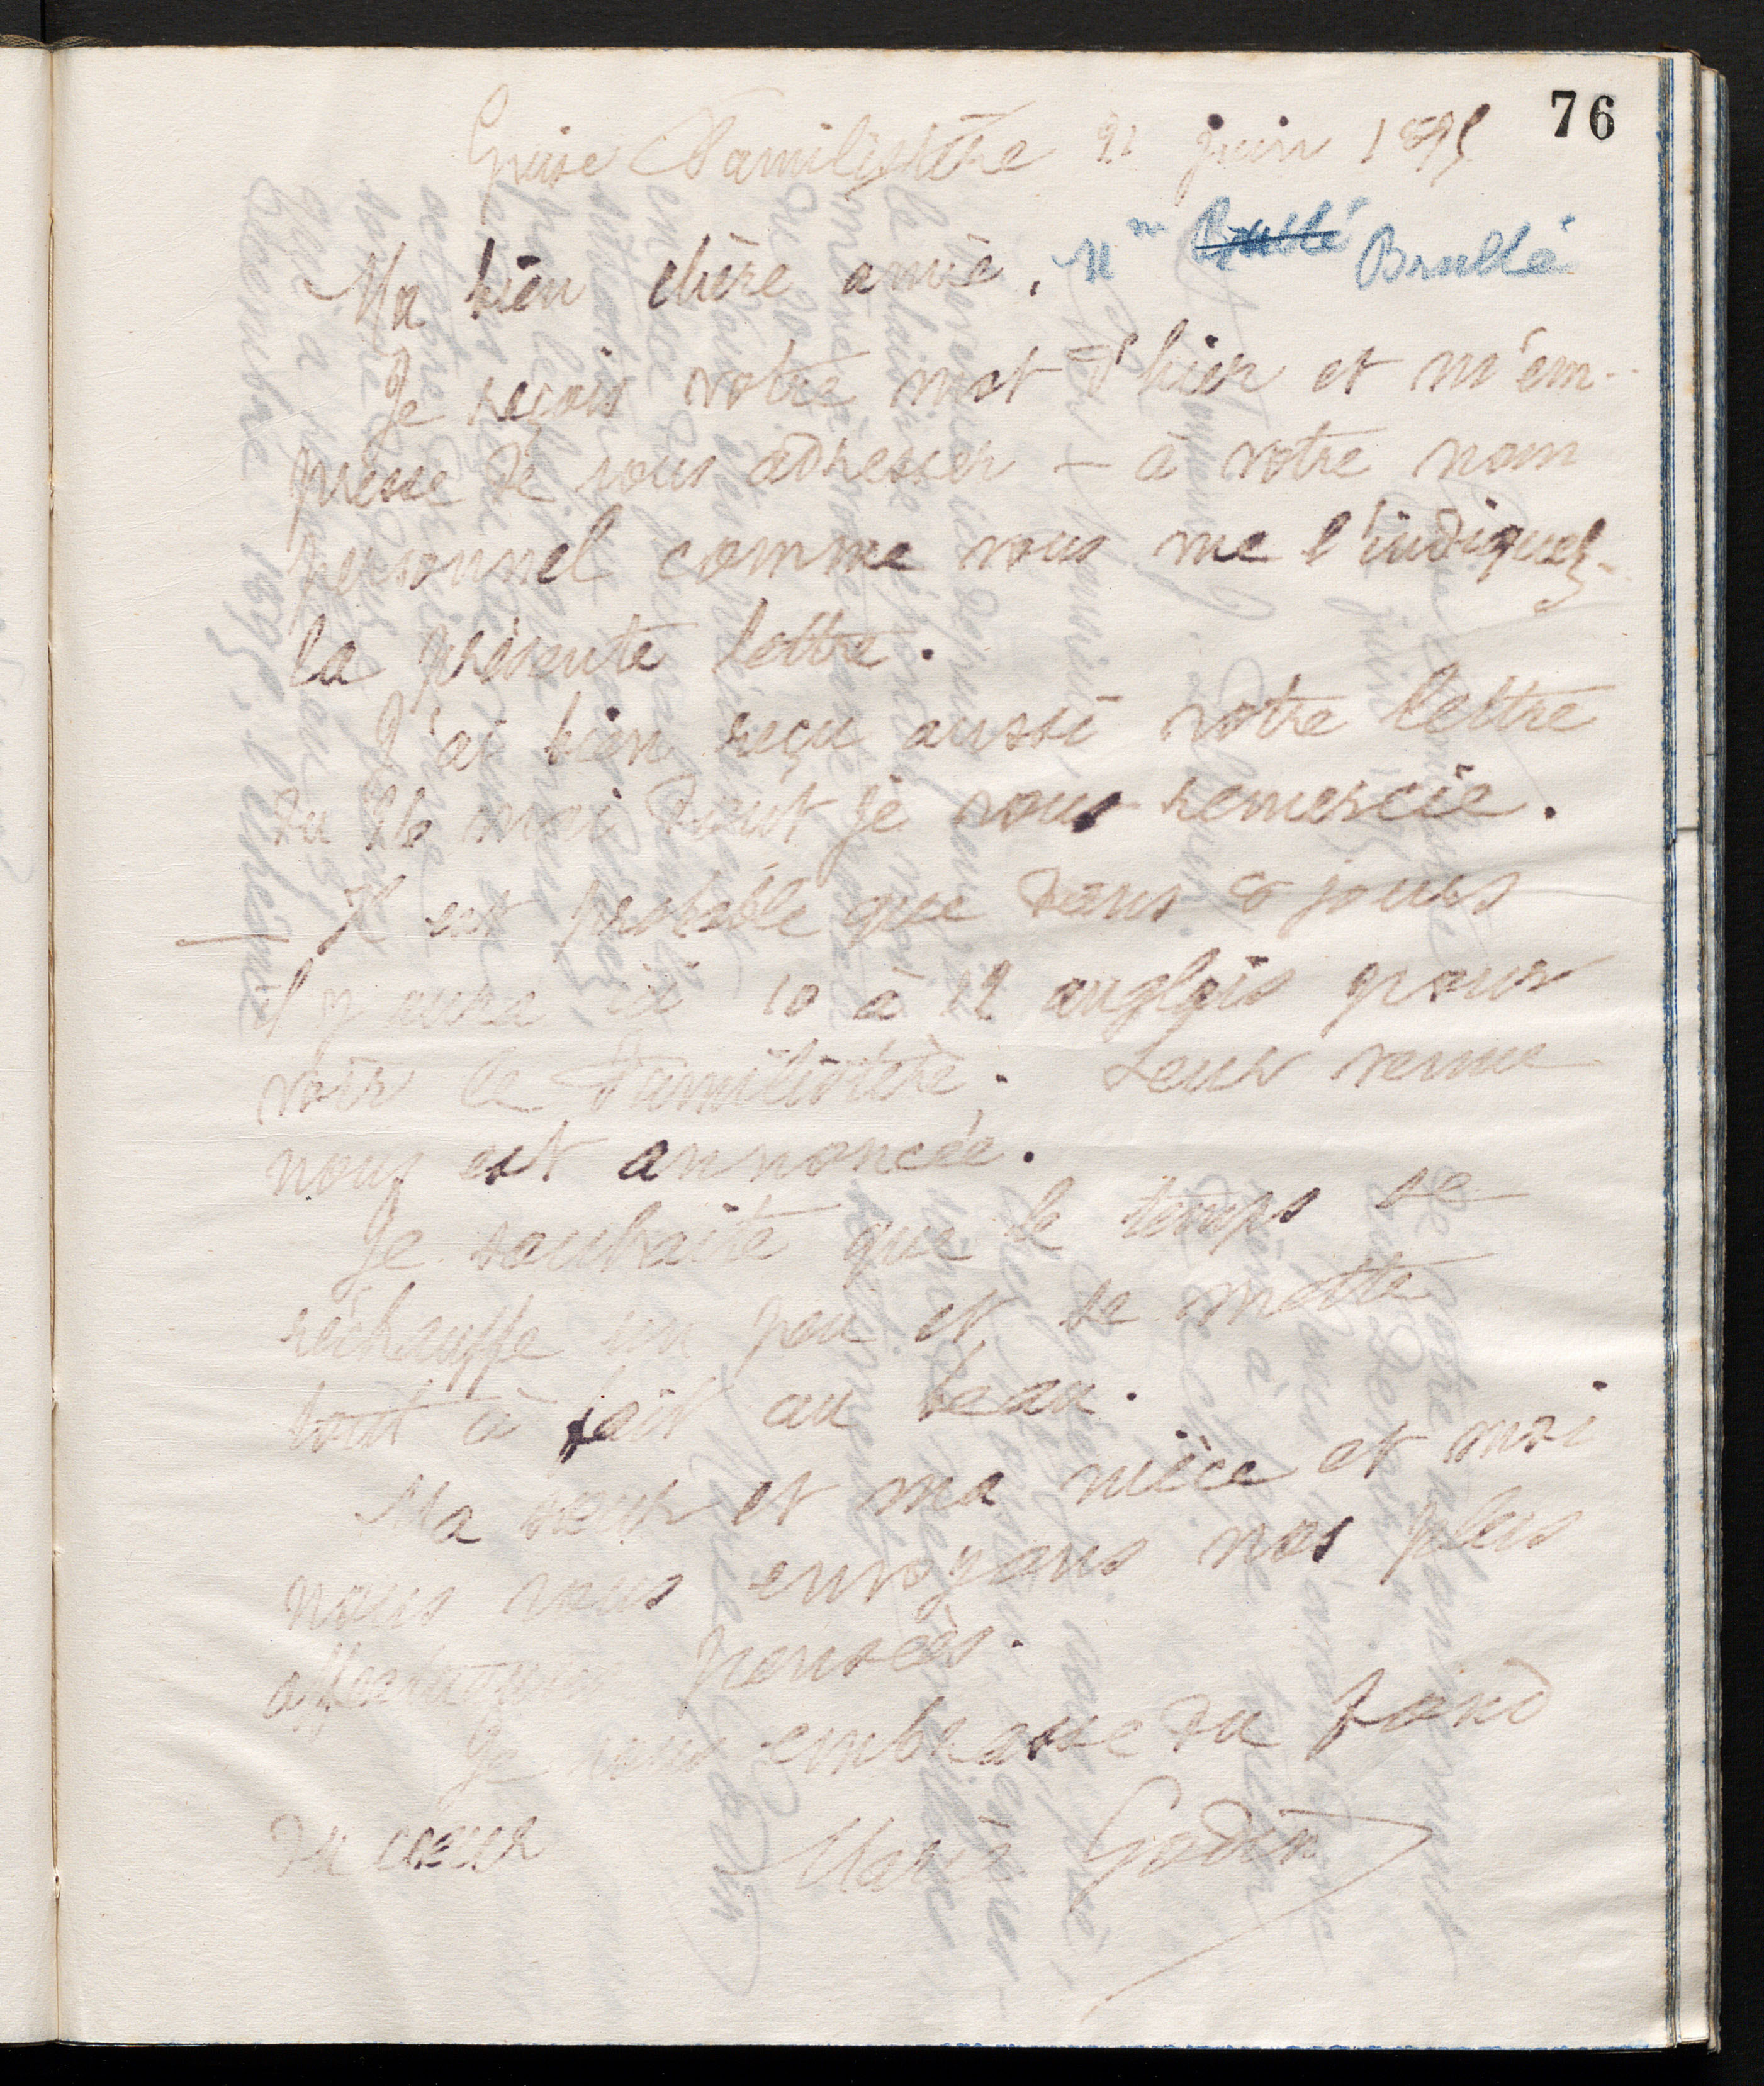 76
Guise Familistère 21 juin 1895
Mme Brullé Brullé
Ma bien chère amie,
Je reçois votre mot d'hier et m'em-
presse de vous adresser – à votre nom
personnel comme vous me l'indiquez –
la présente lettre.
J'ai bien reçu aussi votre lettre
du 26 mai dont je vous remercie.
Il est probable que dans 8 jours
il y aura ici 10 à 12 anglais pour
voir le Familistère. Leur venue
nous est annoncée.
Je souhaite que le temps se
réchauffe un peu et se mette
tout à fait au beau.
Ma sœur et ma nièce et moi
nous vous envoyons nos plus
affectueuses pensées.
Je vous embrasse du fond
du cœur
Marie Godin